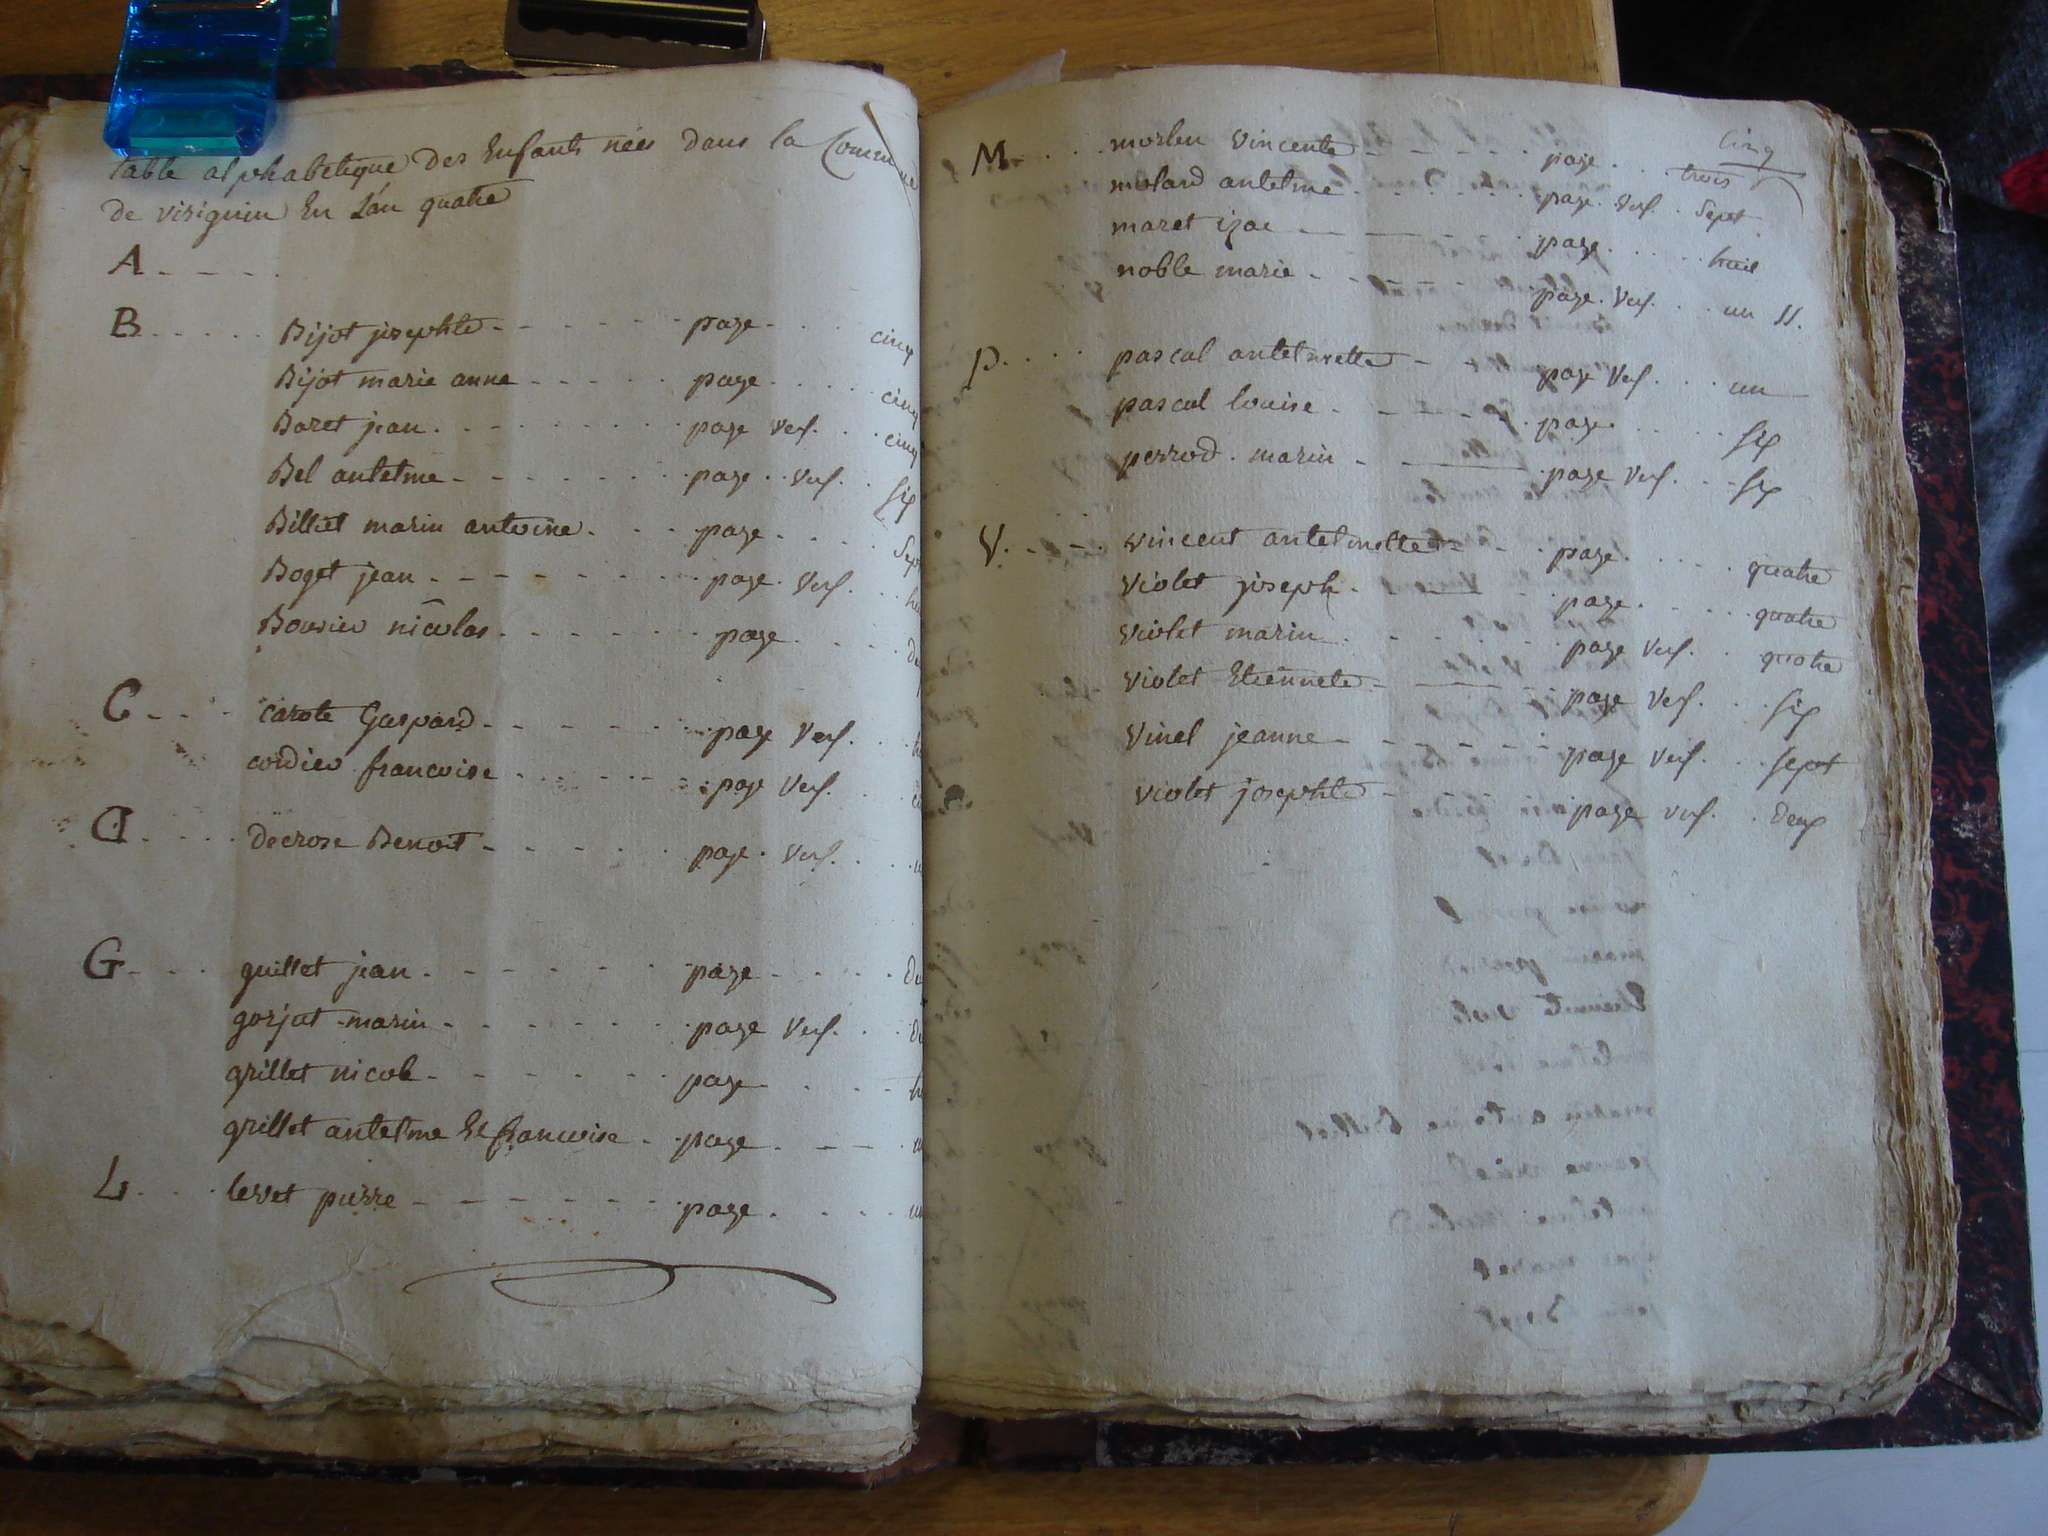 table alphabetique des Enfants nées dans la Commune
de virignin En L'an quatre
A
B Bijot josephte page cinq
Bijot marie anne page cinq
Baret jean page vers. cinq
Bel antelme page vers. six
Billiet marin antoine page sept
Boget jean page vers.
Bouvier nicolas page
C carote Gaspard page vers.
cordier francoise page vers.
D decrose Benoit page vers.
G guillet jean page
gorjut marin page vers.
grillet nicole page
grillet antelme Et francoise page
L levet pierre page
cinq
M vincente page trois
molard antelme page vers. sept
maret izac page huit
noble marie page vers. un
P pascal antelmette page vers. un
pascal louise page six
perrod marin page vers. six
V vincent antelmette page quatre
violet joseph page quatre
violet marin page vers. quatre
violet Etiennete page vers. six
vinel jeanne page vers. sept
violet josephte page vers. deux